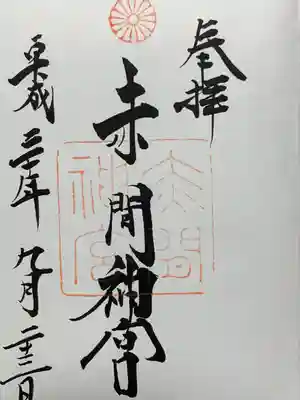 奉拝
赤間神宮
平成三十年九月二十三日
赤間
神宮